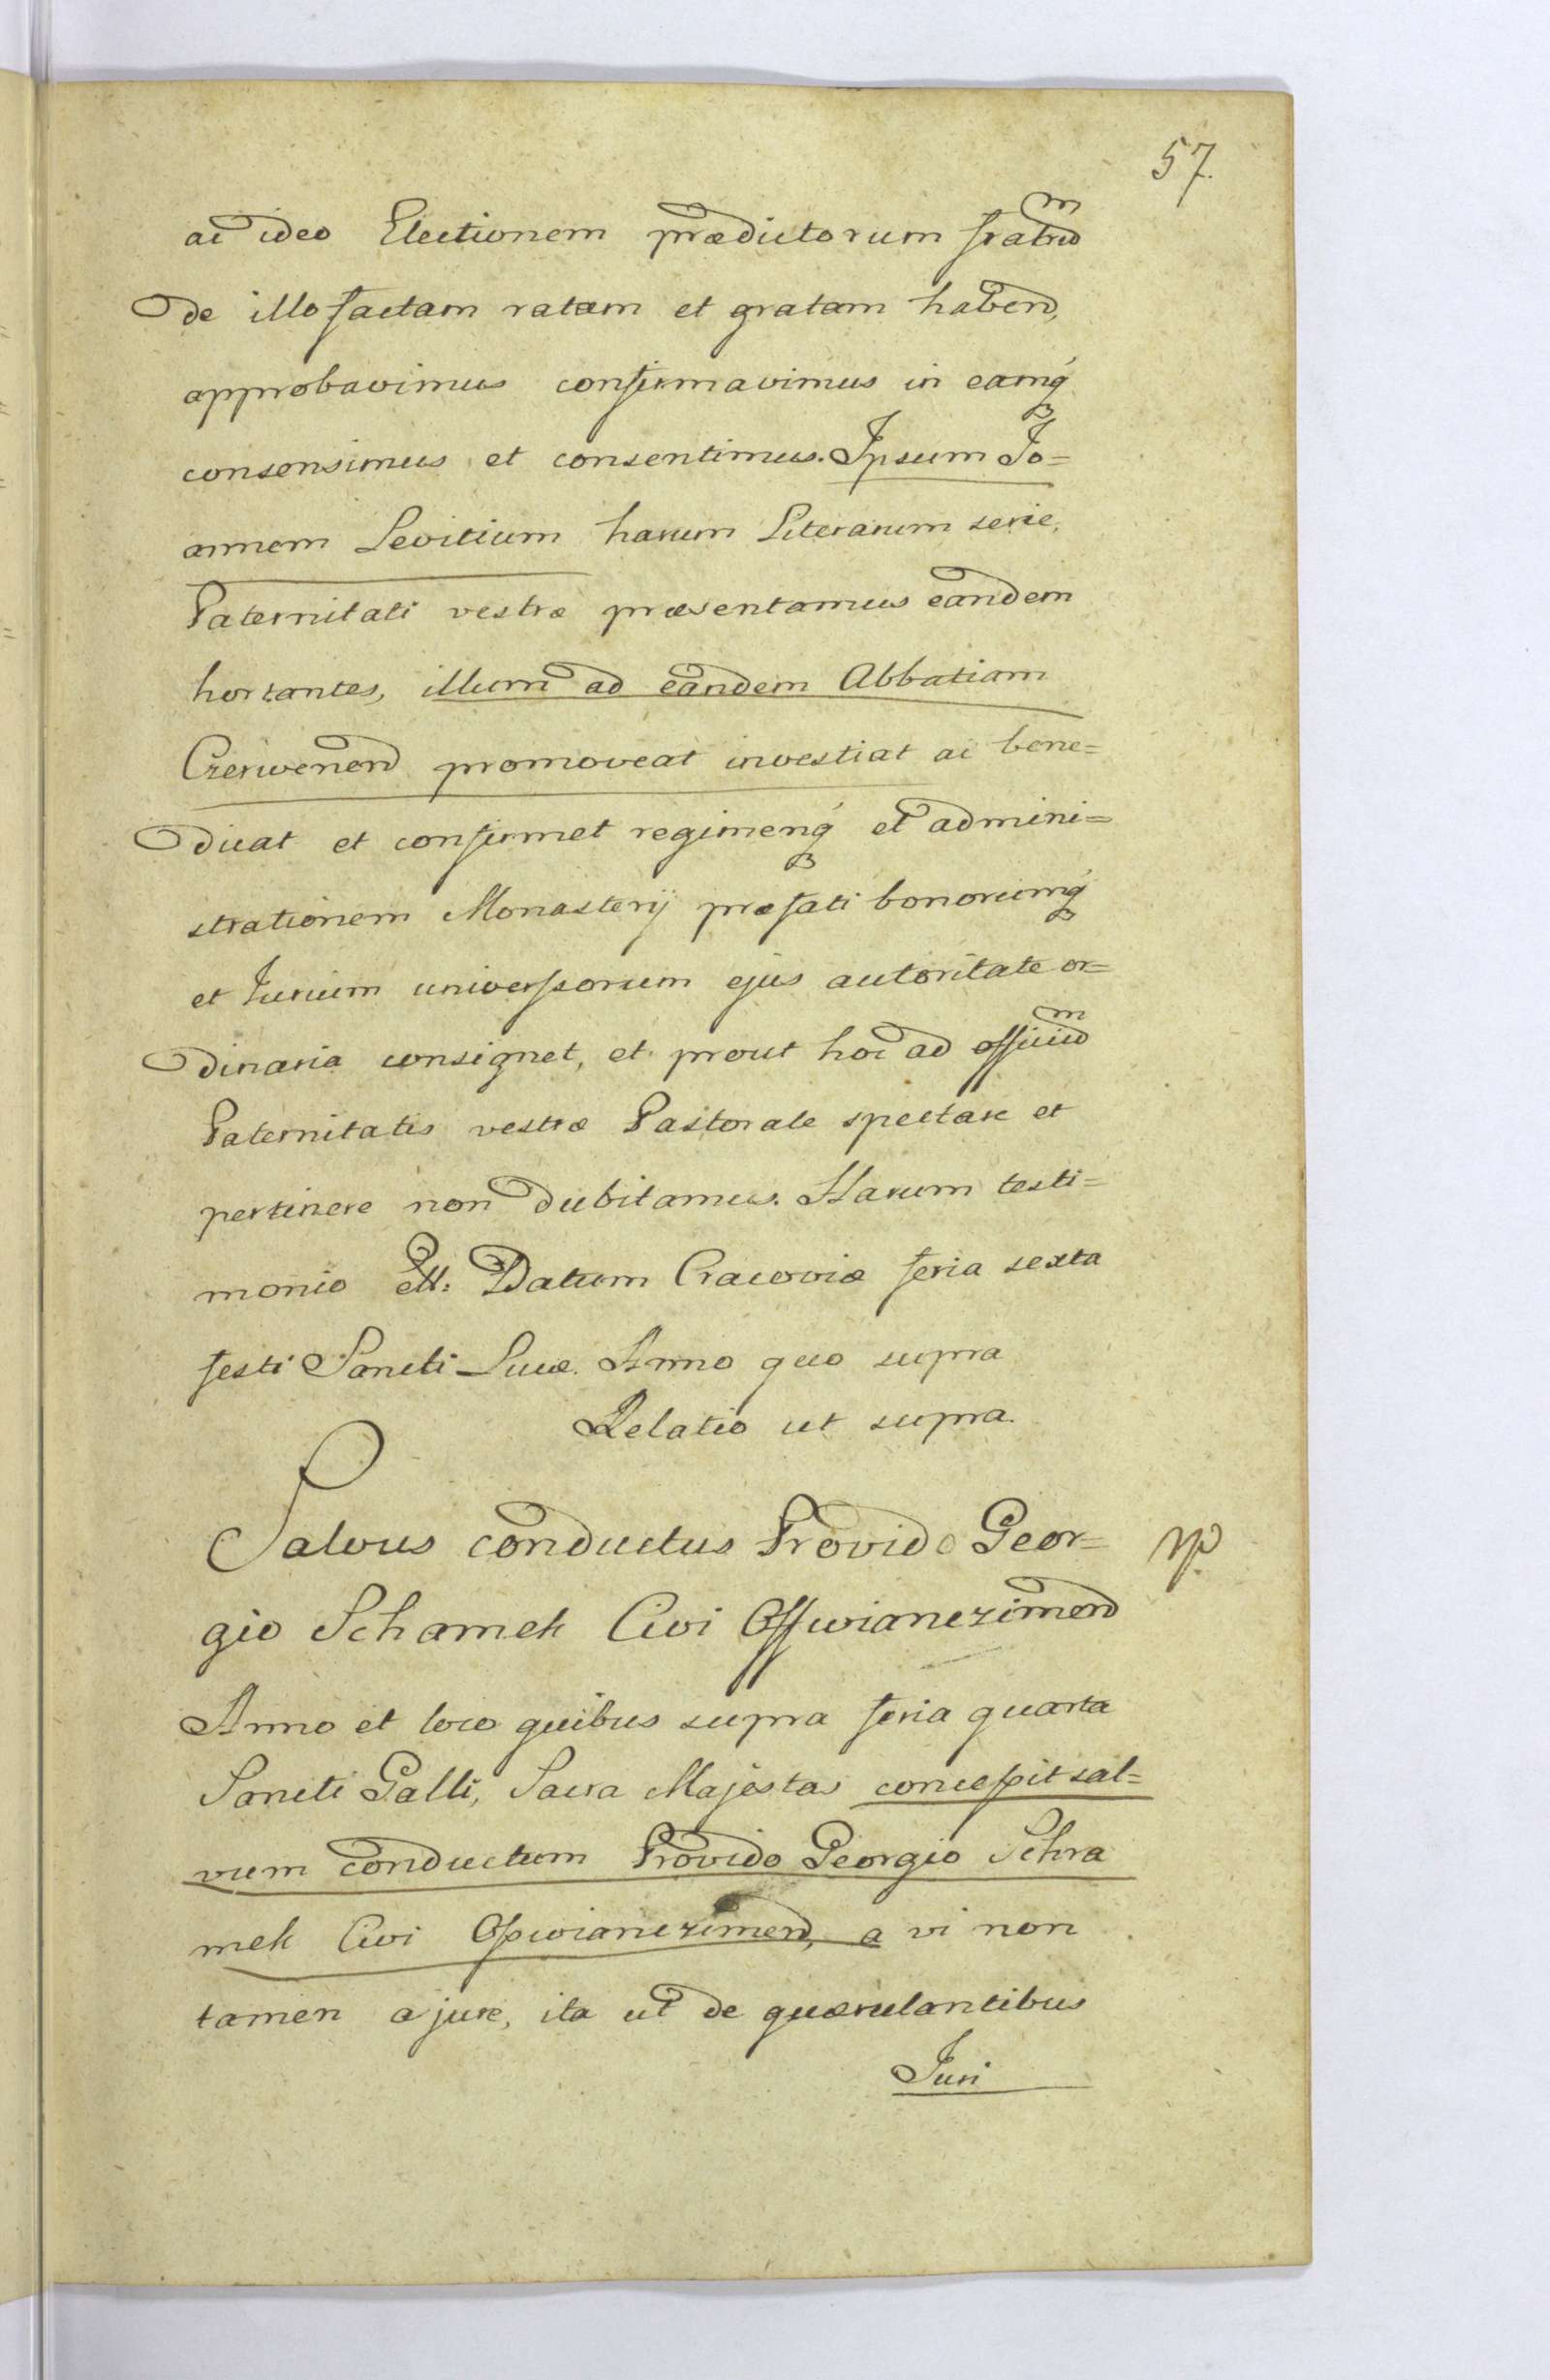 57.
ac ideo Electionem prædictorum fratrū
de illo factam ratam et gratam habend,
approbavimus confirmavimus in eamq́
consensimus et consentimus. Ipsum Jo=
annem Levitium harum Literarum serie,
Paternitati vestræ præsentamus eandem
hortantes, illum ad eandem Abbatiam
Czerwenend promoveat investiat ac bene=
dicat et confirmet regimenq́ et admini=
strationem Monasterij præfati bonorumq́
et Jurium universorum ejus autoritate or=
dinaria consignet, et prout hoc ad officiū
Paternitatis vestræ Pastorale spectare et
pertinere non dubitamus. Harum testi=
monio ett: Datum Cracoviæ feria sexta
festi Sancti Lucæ. Anno quo supra
Relatio ut supra.
Salvus conductus Provido Geor=
gio Schamek Civi Osswianczimend
Anno et loco quibus supra feria quarta
Sancti Galli, Sacra Majestas concessit sal=
vum conductum Provido Georgio Schra
mek Civi Oswianczimend, a vi non
tamen a jure, ita ut de quærulantibus
Juri